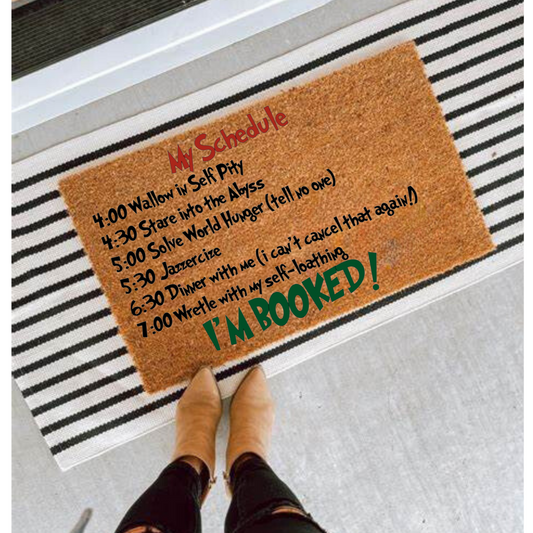 My Schedule
4:00 Wallow in Self Pity
4:30 Stare into the Abyss
5:00 Solve World Hunger (tell no one)
5:30 Jazzercize
6:30 Dinner with me (i can't cancel that again!)
7:00 Wretle with my self-loathing
I'M BOOKED!